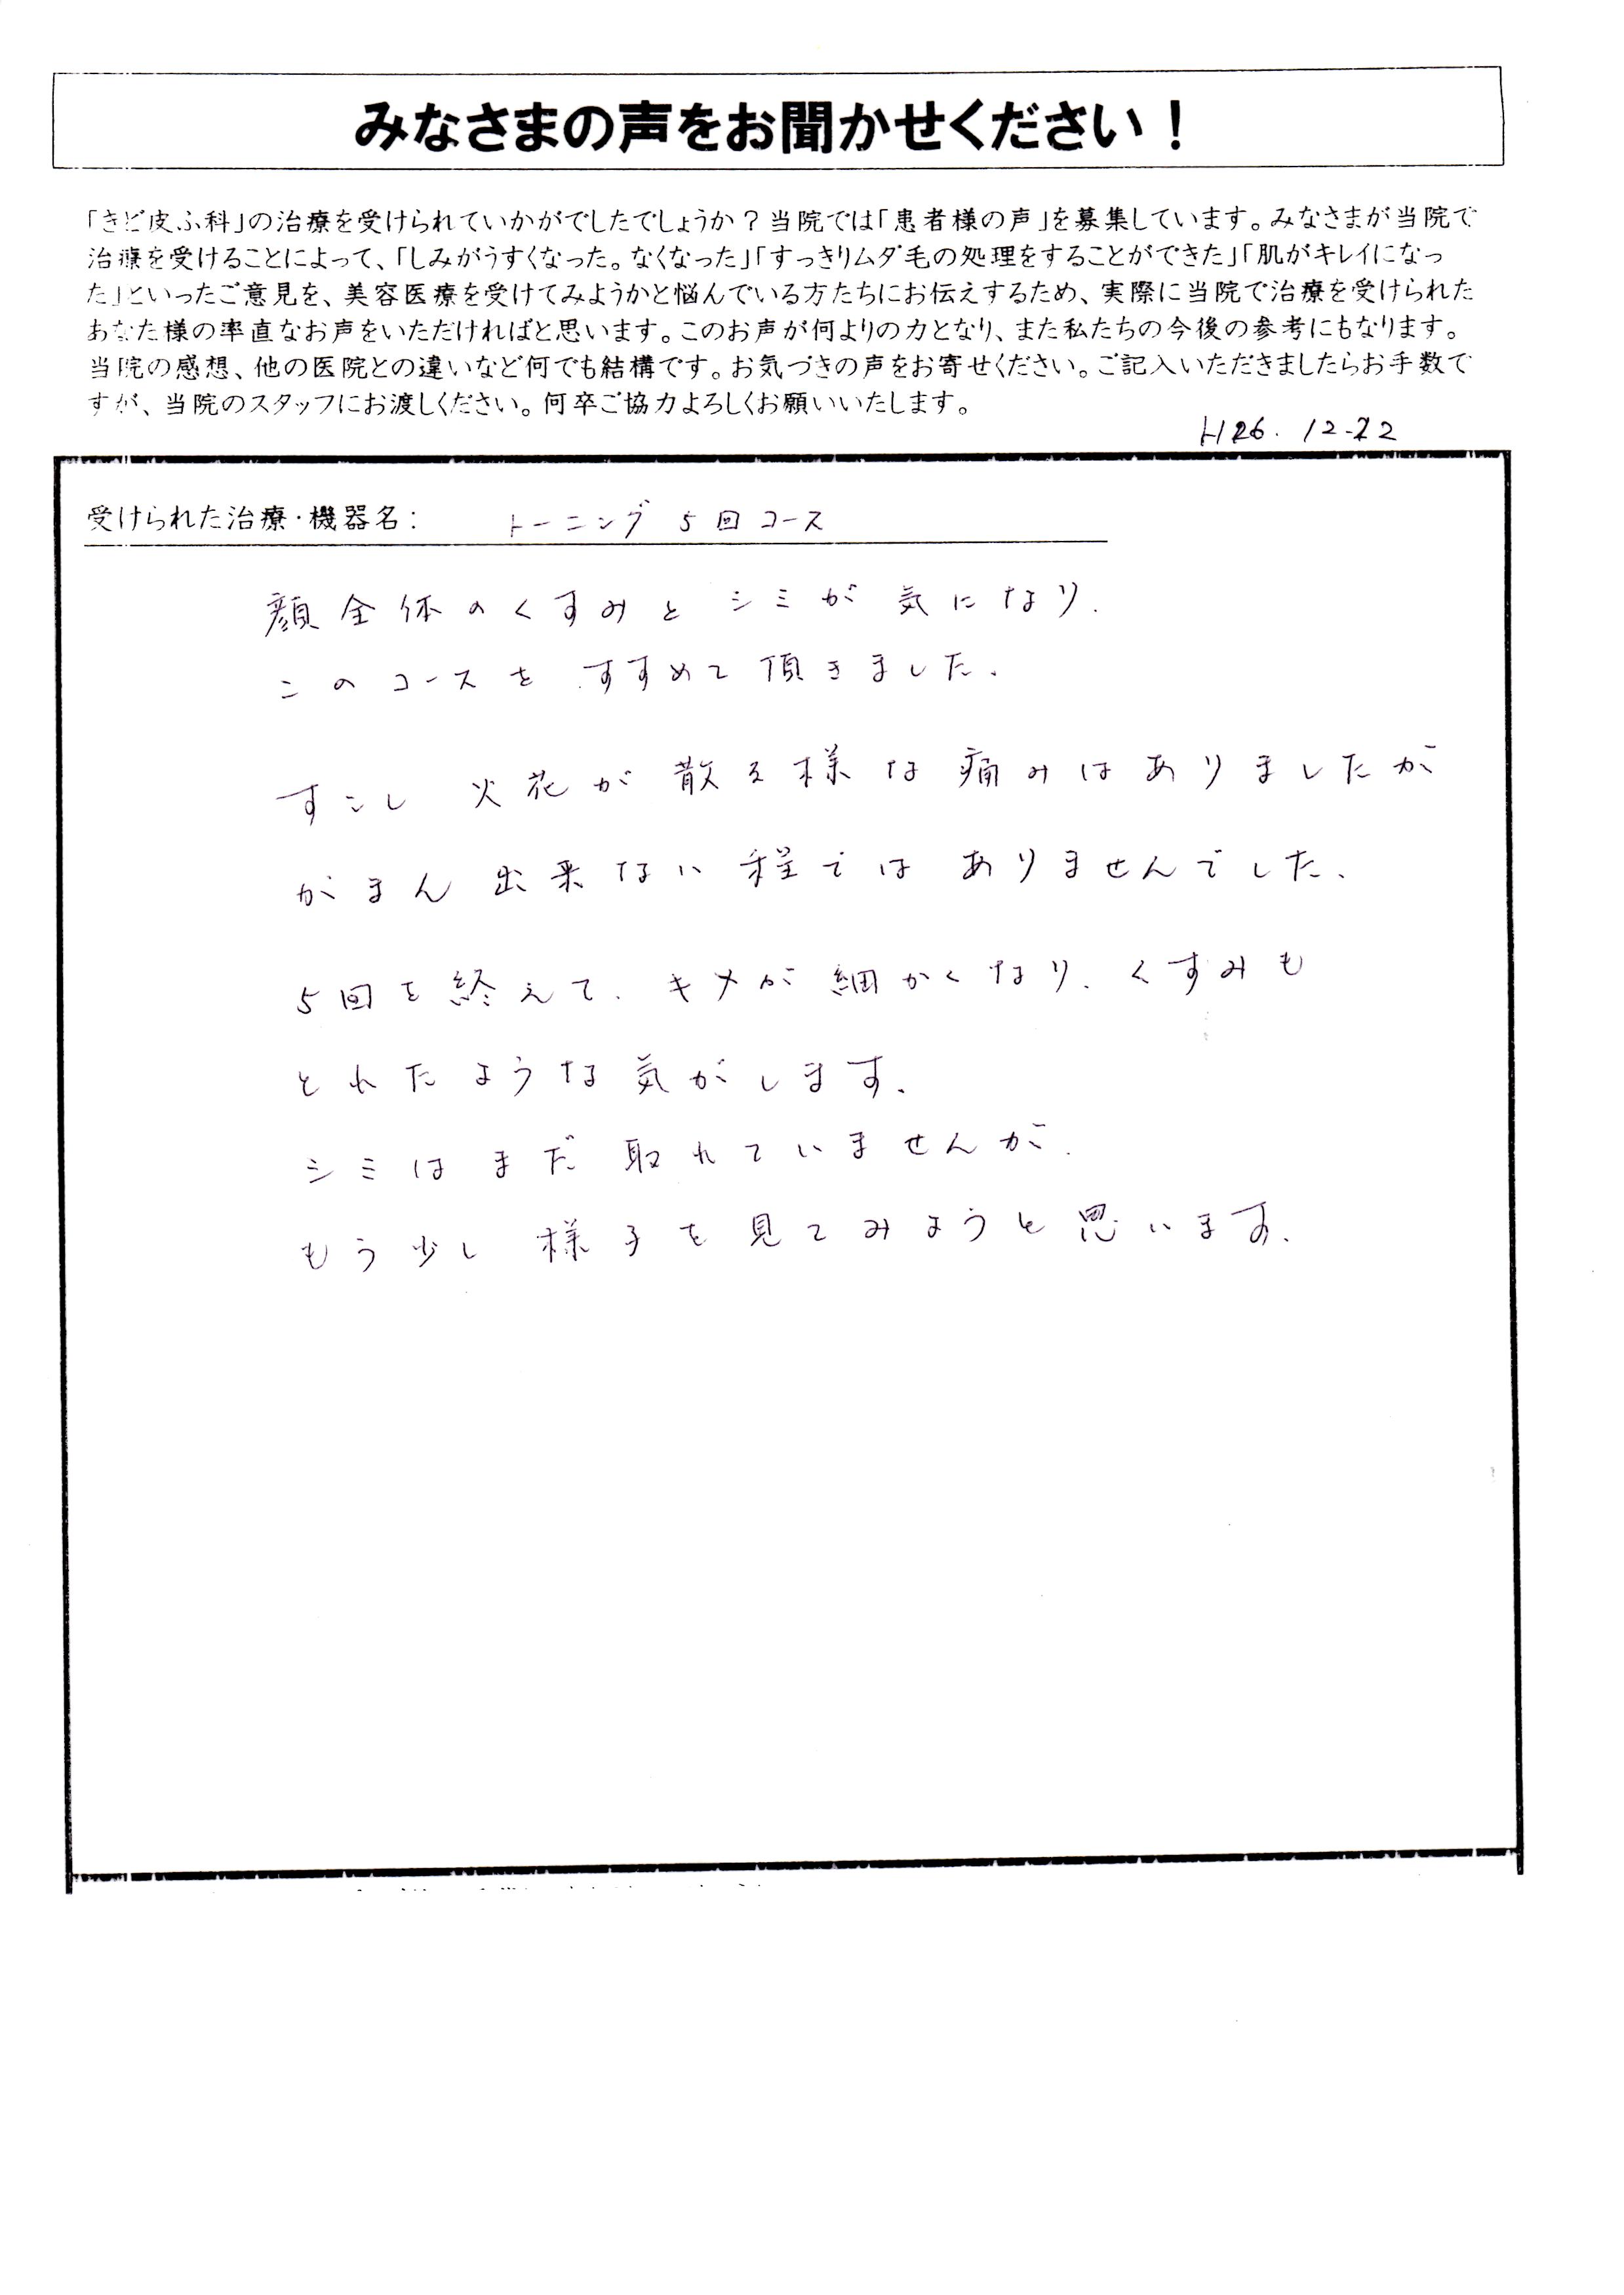 みなさまの声をお聞かせください！
「きど皮ふ科」の治療を受けられていかがでしたでしょうか？当院では「患者様の声」を募集しています。みなさまが当院で
治療を受けることによって、「しみがうすくなった。なくなった」「すっきりムダ毛の処理をすることができた」「肌がキレイになっ
た」といったご意見を、美容医療を受けてみようかと悩んでいる方たちにお伝えするため、実際に当院で治療を受けられた
あなた様の率直なお声をいただければと思います。このお声が何よりの力となり、また私たちの今後の参考にもなります。
当院の感想、他の医院との違いなど何でも結構です。お気づきの声をお寄せください。ご記入いただきましたらお手数で
すが、当院のスタッフにお渡しください。何卒ご協力よろしくお願いいたします。
H26. 12-22
受けられた治療・機器名： トーニング 5回コース
顔全体のくすみとシミが気になり、
このコースをすすめて頂きました。
すこし 火花が散る様な痛みはありましたが
がまん出来ない程ではありませんでした。
5回を終えて、キメが細かくなり、くすみも
とれたような気がします。
シミはまだ取れていませんが、
もう少し様子を見てみようと思います。